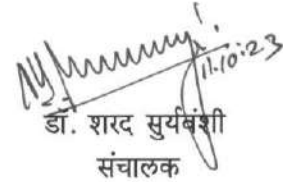 11.10.23
डॉ. शरद सुर्यवंशी
संचालक